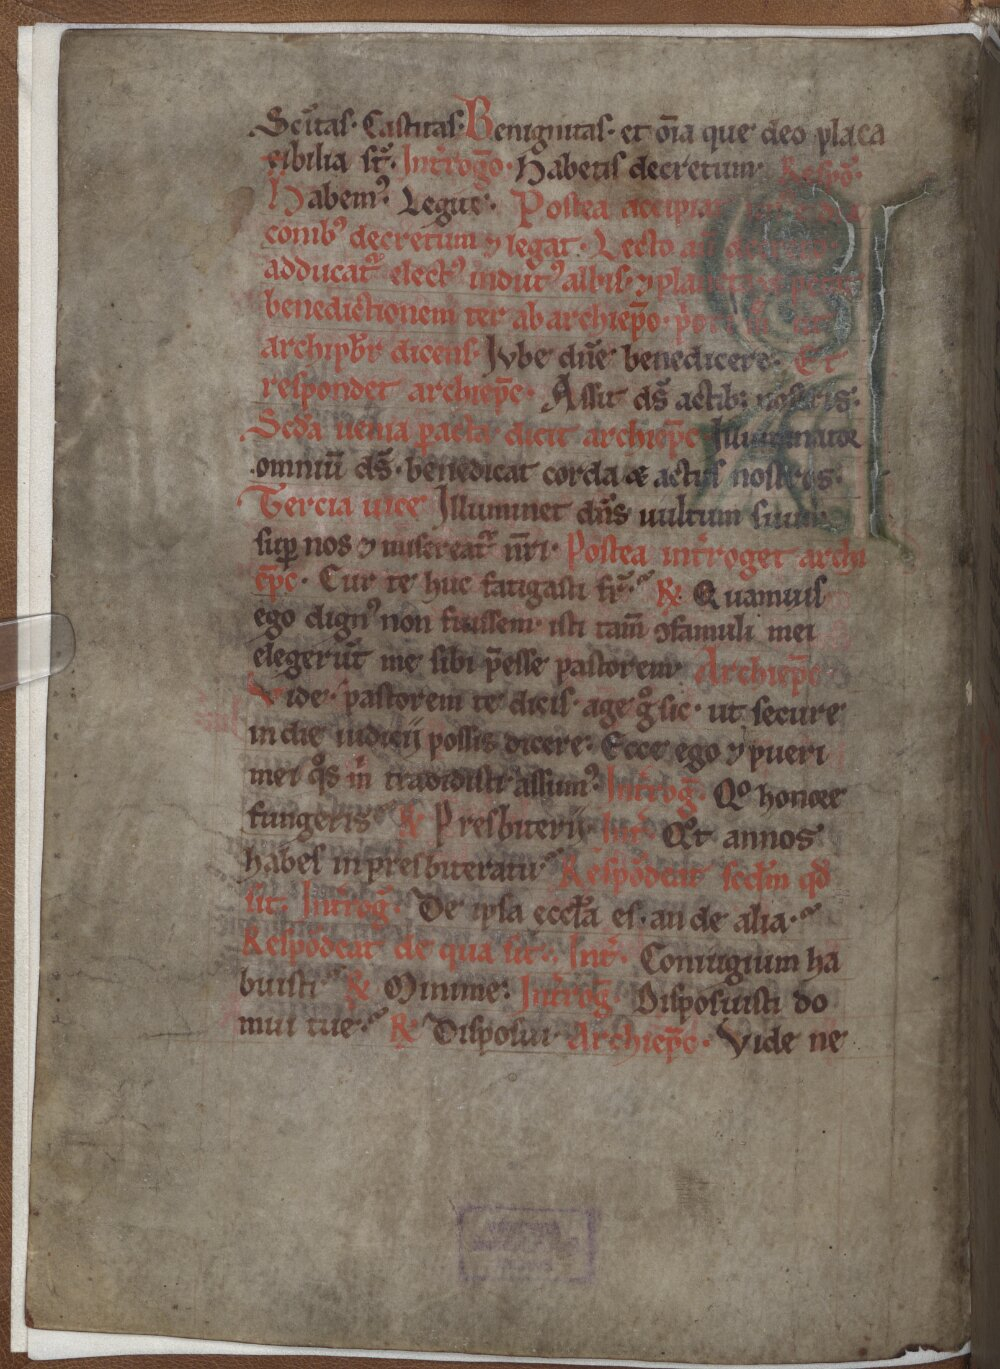 Sc̄itas· Castitas· Benignitas· et om̄ia que deo placa
sibilia st̄· Int̉rogāo· Habetis decretum· Respō·
Habem⁹· Legite· Postea accipiat
comb⁹ decretum ⁊ legat· Lecto
adducat᷑ elect⁹ indut⁹ albis· ⁊ planeta
benedictionem ter ab archiep̄o·
archipb̄r dicens· Jube dn̄e benedicere· Et
respondet archiep̄c· Assit ds̄ actib; nostris·
Scd̄a uenia ꝑacta dicit archiep̄c
omniū ds̄· benedicat corda et actus nostros·
Tercia uice Illuminet dn̄s uultum suum
suꝑ nos ⁊ misereat᷑ nr̄i· Postea int̉roget archi
ep̄c· Cur te huc fatigasti fr̄· ℟ Quamuis
ego dign⁹ non fuissem· isti tam̄ ꝯfamuli mei
elegerūt me sibi p̄esse pastorem· Archiep̄c·
Vide· pastorem te dicis· age gͦ sic· ut secure
in die iudicij possis dicere· Ecce ego ⁊ pueri
mei qͦs m̉ tradidisti assum⁹· Int̉roḡ· Qͦ honore
fungeris ℟ Presbiterij· Int̉ Qͦt annos
habes in presbiteratu Respōdeat scd̄m qd̄
sit· Int̉roḡ· De ipsa eccl̄a es· an de alia·
Respōdeat de qua sit· Int̉· Coniugium ha
buisti ℟ Minime· Int̉roḡ· Disposuisti do
mui tue· ℟ Disposui· Archiep̄c· Vide ne